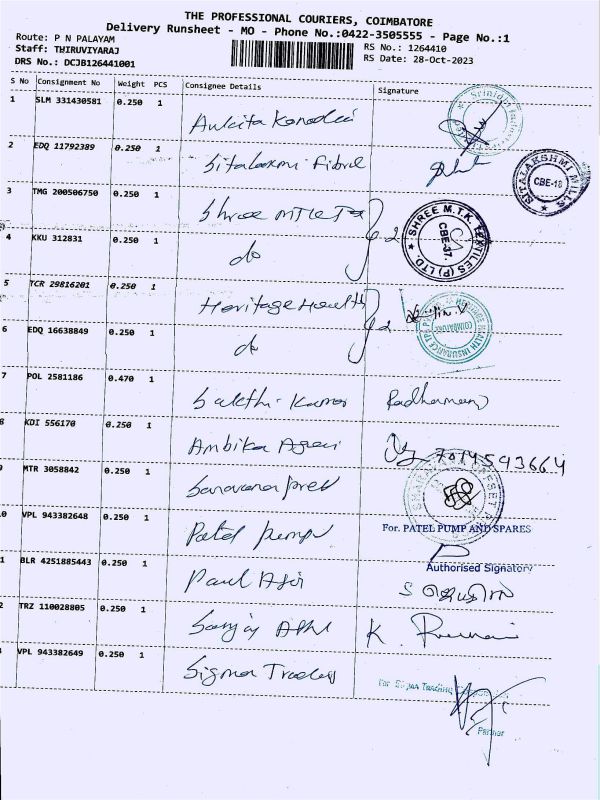 THE PROFESSIONAL COURIERS, COIMBATORE
Delivery Runsheet - MO - Phone No.:0422-3505555 - Page No.:1
Route: P N PALAYAM
Staff: THIRUVIYARAJ
DRS No.: DCJB126441001
RS No.: 1264410
RS Date: 28-Oct-2023
S No Consignment No Weight PCS Consignee Details Signature
1 SLM 331430581 0.250 1
Ankita
2 EDQ 11792389 0.250 1
Sitalaxmi
SITALAKSHMI MILLS
CBE-18
3 TMG 200506750 0.250 1
Shree
SHREE M.T.K. TEXTILES (P) LTD.
CBE-37.
4 KKU 312831 0.250 1
do
5 TCR 29816201 0.250 1
Heritage Health
HERITAGE HEALTH INSURANCE TPA
COIMBATORE
6 EDQ 16638849 0.250 1
do
7 POL 2581186 0.470 1
Sakthi Kumar
8 KDI 556170 0.250 1
Ambika
7014593664
9 MTR 3058842 0.250 1
Saravana
0 VPL 943382648 0.250 1
Patel pump
For. PATEL PUMP AND SPARES
Authorised Signatory
1 BLR 4251885443 0.250 1
Paul
2 TRZ 110028805 0.250 1
Sanjay
K.
VPL 943382649 0.250 1
Sigma Traders
Partner